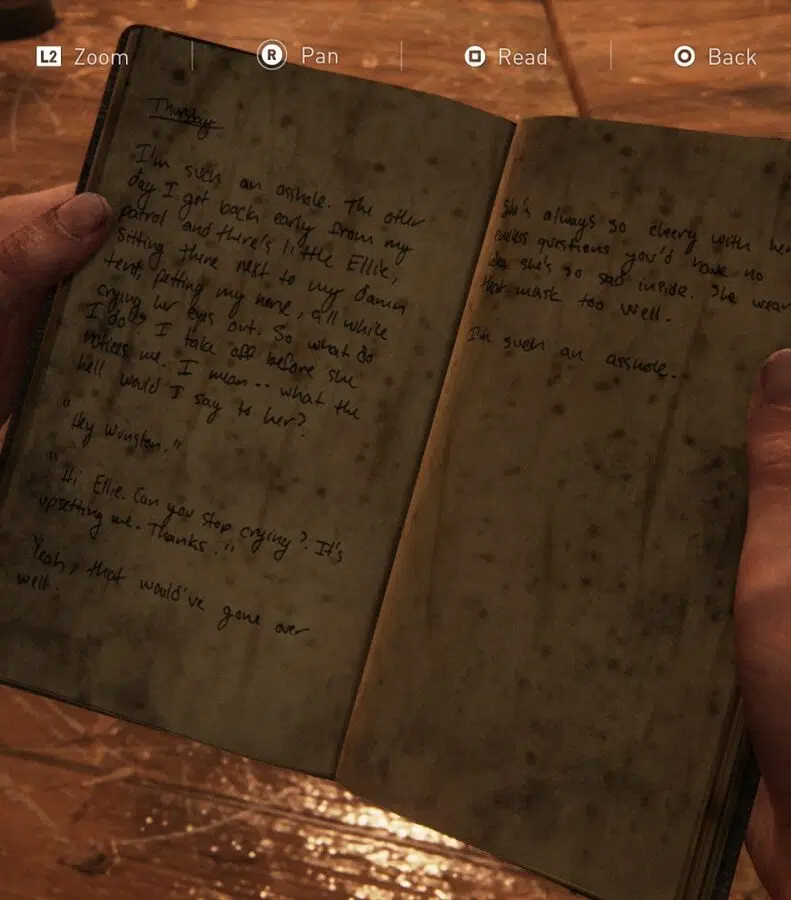 L2 Zoom
R Pan
Read
Back
Thursday
I'm such an asshole. The other
day I got back early from my
patrol and there's little Ellie,
sitting there next to my damn
tent, petting my horse, all while
crying her eyes out. So what do
I do? I take off before she
notices me. I mean -- what the
hell would I say to her?
"Hey Winston."
"Hi Ellie. Can you stop crying? It's
upsetting me. Thanks."
Yeah, that would've gone over
well.
She's always so cheery with her
endless questions you'd have no
idea she's so sad inside. She wears
that mask too well.
I'm such an asshole...